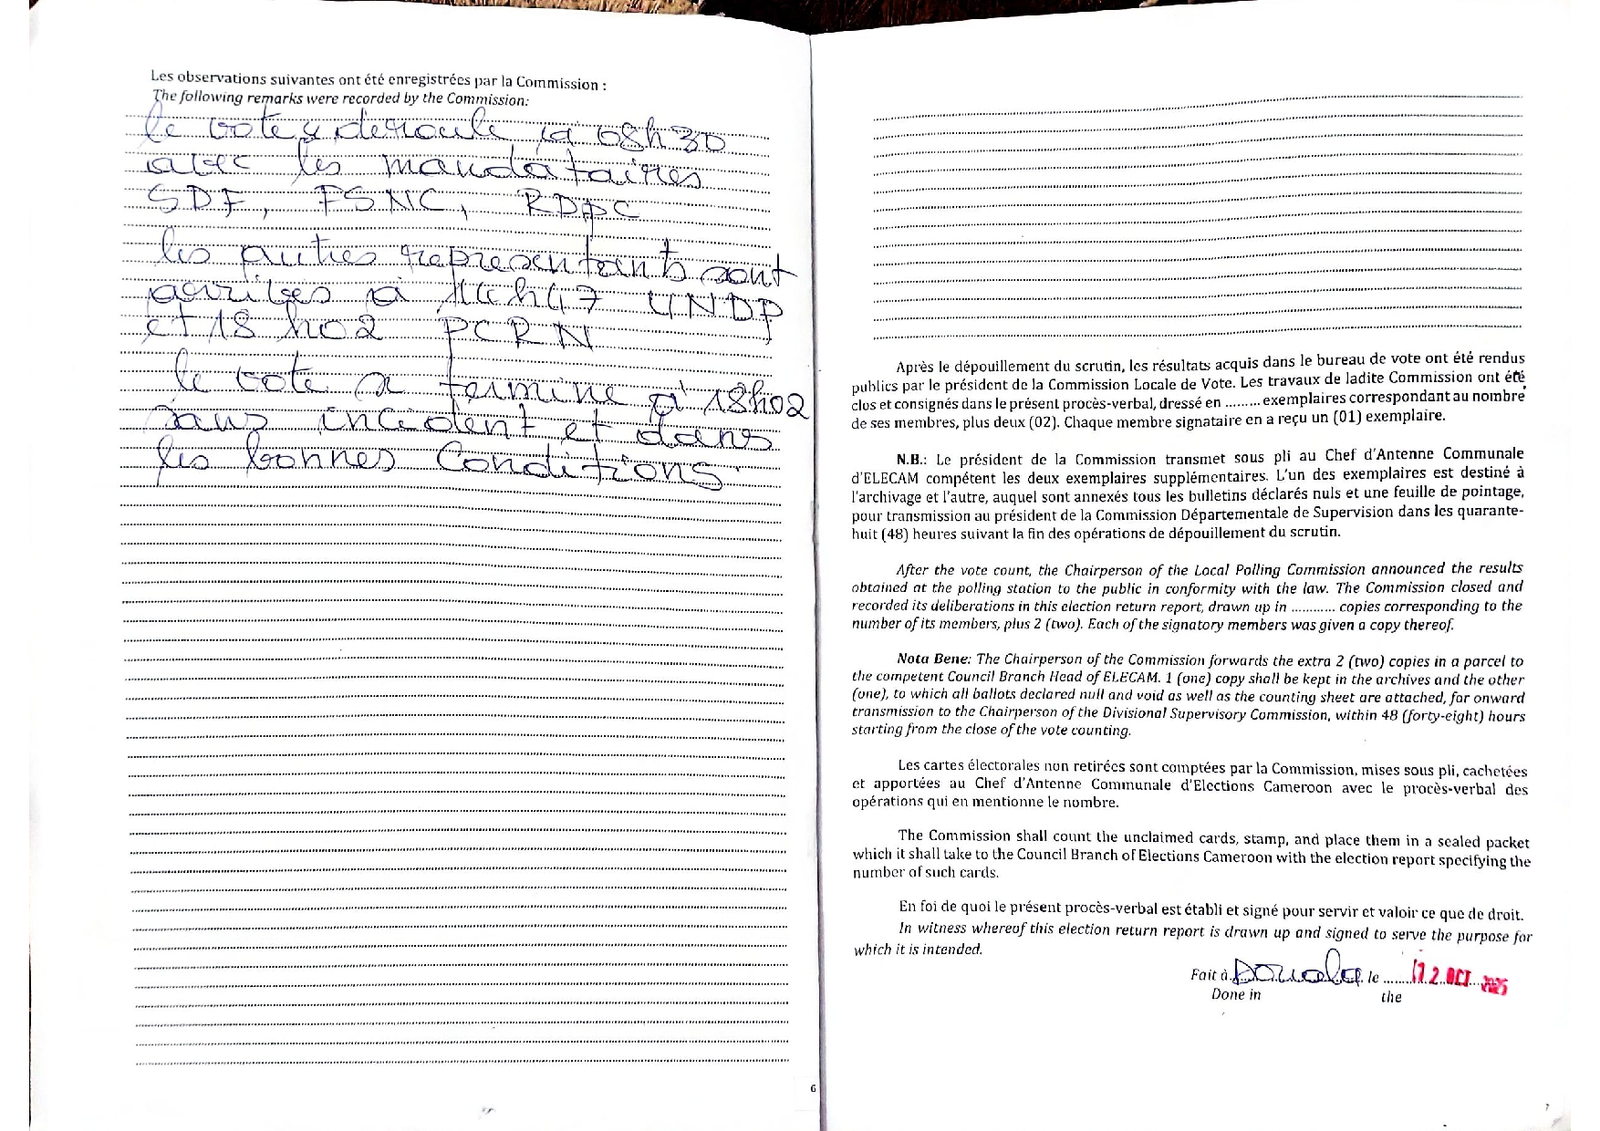 Les observations suivantes ont été enregistrées par la Commission :
The following remarks were recorded by the Commission:
le vote s deroule à 08h30
avec les mandataires
SDF, FSNC, RDPC
les autres representants sont
arrivées à 14h47 UNDP
et 18 h02 PCRN
le vote a terminé à 18h02
sans incident et dans
les bonnes Conditions.
6
Après le dépouillement du scrutin, les résultats acquis dans le bureau de vote ont été rendus
publics par le président de la Commission Locale de Vote. Les travaux de ladite Commission ont été
clos et consignés dans le présent procès-verbal, dressé en ......... exemplaires correspondant au nombre
de ses membres, plus deux (02). Chaque membre signataire en a reçu un (01) exemplaire.
N.B.: Le président de la Commission transmet sous pli au Chef d'Antenne Communale
d'ELECAM compétent les deux exemplaires supplémentaires. L'un des exemplaires est destiné à
l'archivage et l'autre, auquel sont annexés tous les bulletins déclarés nuls et une feuille de pointage,
pour transmission au président de la Commission Départementale de Supervision dans les quarante-
huit (48) heures suivant la fin des opérations de dépouillement du scrutin.
After the vote count, the Chairperson of the Local Polling Commission announced the results
obtained at the polling station to the public in conformity with the law. The Commission closed and
recorded its deliberations in this election return report, drawn up in ............ copies corresponding to the
number of its members, plus 2 (two). Each of the signatory members was given a copy thereof.
Nota Bene: The Chairperson of the Commission forwards the extra 2 (two) copies in a parcel to
the competent Council Branch Head of ELECAM. 1 (one) copy shall be kept in the archives and the other
(one), to which all ballots declared null and void as well as the counting sheet are attached, for onward
transmission to the Chairperson of the Divisional Supervisory Commission, within 48 (forty-eight) hours
starting from the close of the vote counting.
Les cartes électorales non retirées sont comptées par la Commission, mises sous pli, cachetées
et apportées au Chef d'Antenne Communale d'Elections Cameroon avec le procès-verbal des
opérations qui en mentionne le nombre.
The Commission shall count the unclaimed cards, stamp, and place them in a sealed packet
which it shall take to the Council Branch of Elections Cameroon with the election report specifying the
number of such cards.
En foi de quoi le présent procès-verbal est établi et signé pour servir et valoir ce que de droit.
In witness whereof this election return report is drawn up and signed to serve the purpose for
which it is intended.
Fait à Douala le 12 OCT 2025
Done in the
7